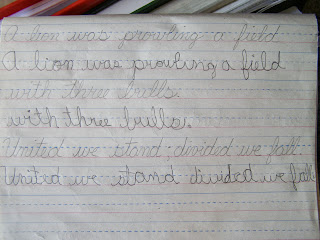 A lion was prowling a field
A lion was prowling a field
with three bulls.
with three bulls.
United we stand, divided we fall
United we stand divided we fall